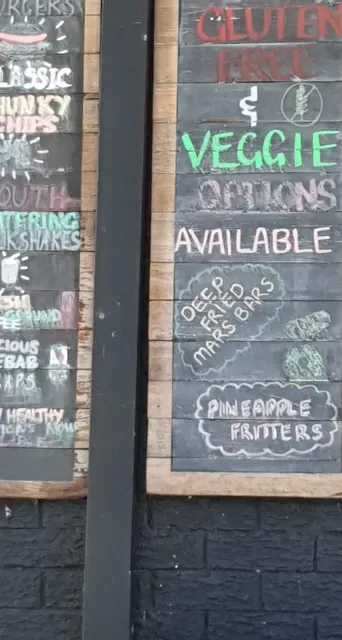 URGERS
LASSIC
HUNKY
CHIPS
OUTH
TERING
KSHAKES
GROUND
FEE
CIOUS
EBAB
APS
HEALTHY
GLUTEN
FREE
&
VEGGIE
OPTIONS
AVAILABLE
DEEP
FRIED
MARS BARS
PINEAPPLE
FRITTERS